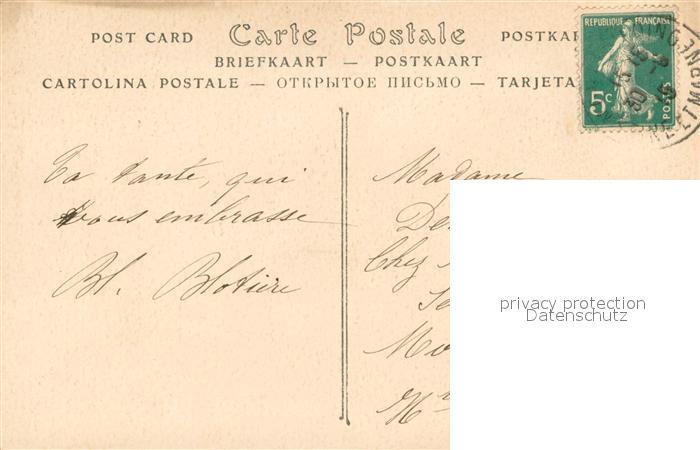 POST CARD Carte Postale POSTKAR
BRIEFKAART — POSTKAART
CARTOLINA POSTALE — ОТКРЫТОЕ ПИСЬМО — TARJETA
REPUBLIQUE FRANÇAISE
5c
POSTES
Ta tante, qui
vous embrasse
Bl. Blotière
Madame
De
Chez
Mo
privacy protection
Datenschutz